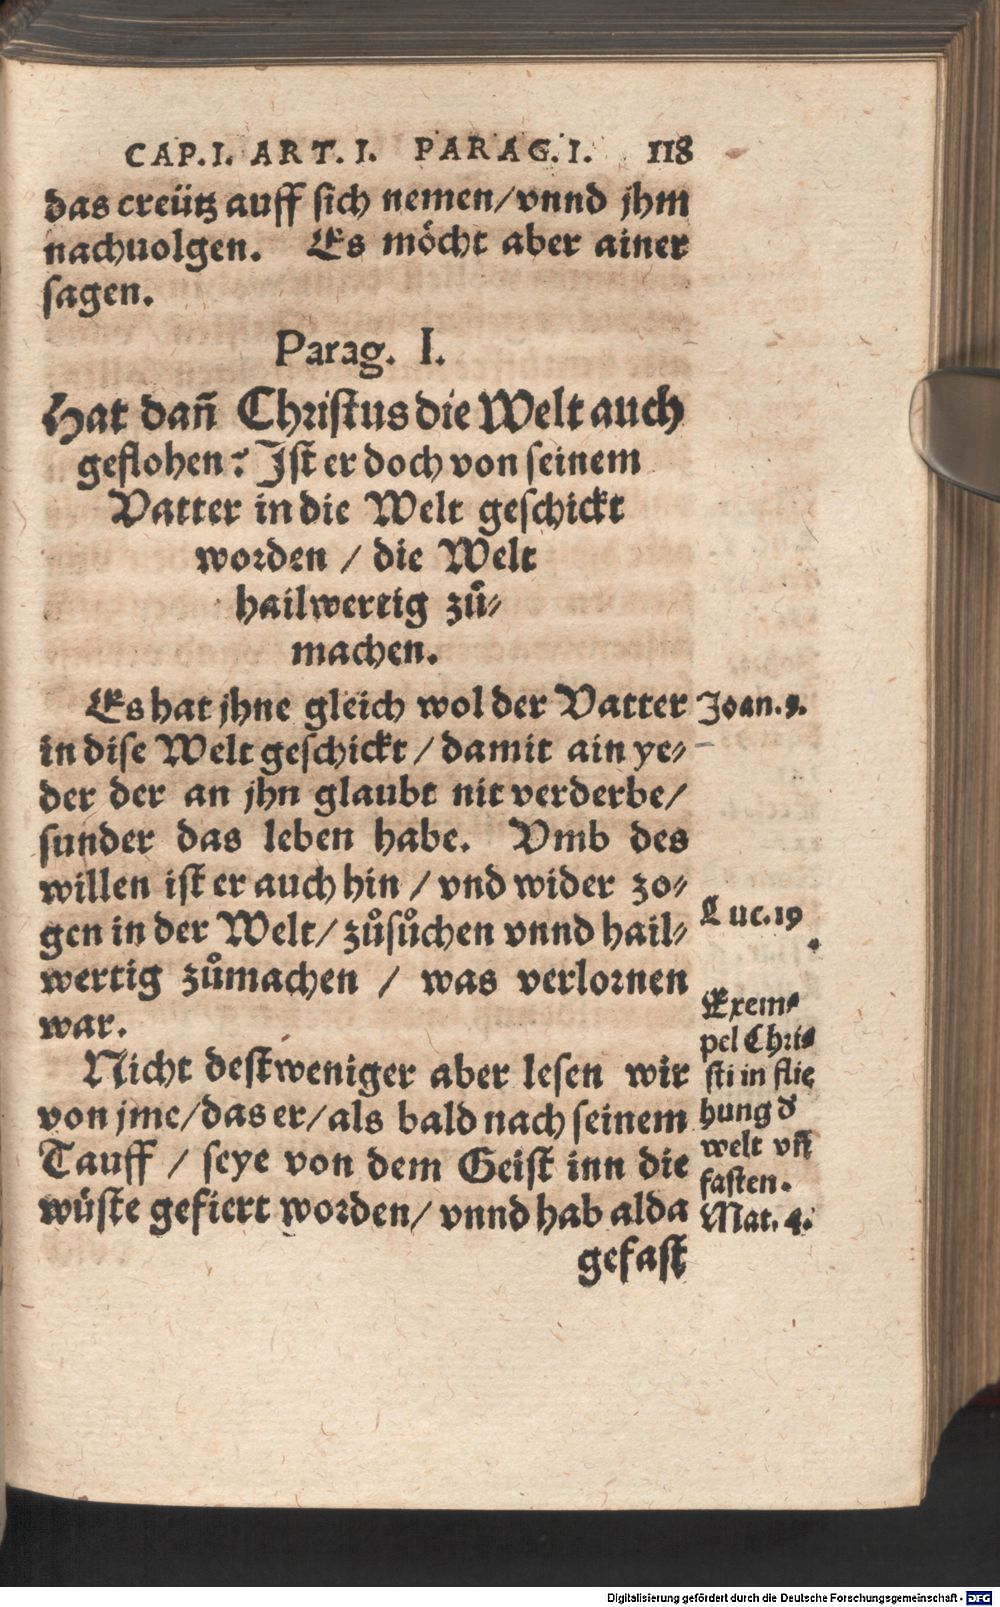 CAP. I. ART. I. PARAG. I. 118
das creütz auff sich nemen/ vnnd jhm
nachuolgen. Es möcht aber ainer
sagen.
Parag. I.
Hat dañ Christus die Welt auch
geflohen? Ist er doch von seinem
Vatter in die Welt geschickt
worden / die Welt
hailwertig zů⸗
machen.
Es hat jhne gleich wol der Vatter
in dise Welt geschickt / damit ain ye⸗
der der an jhn glaubt nit verderbe/
sunder das leben habe. Vmb des
willen ist er auch hin / vnd wider zo⸗
gen in der Welt/ zůsůchen vnnd hail⸗
wertig zůmachen / was verlornen
war.
Nicht destweniger aber lesen wir
von jme/ das er/ als bald nach seinem
Tauff / seye von dem Geist inn die
wüste gefiert worden/ vnnd hab alda
gefast
Joan.
Luc. 19
.
Exem⸗
pel Chri⸗
sti in flie
hung d'
welt vñ
fasten.
Mat. 4.
Digitalisierung gefördert durch die Deutsche Forschungsgemeinschaft - DFG